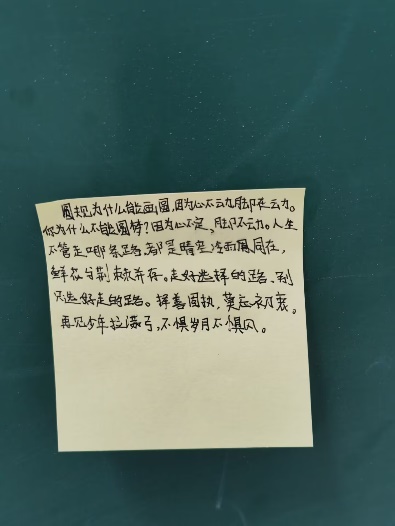 圆规为什么能画圆,因为心不动脚在动。
你为什么不能圆梦?因为心不定,脚不动。人生
不管走哪条路,都是晴空冷雨同在,
鲜花与荆棘并存。走好选择的路、别
只选好走的路。择善固执,莫忘初衷。
再见少年拉满弓,不惧岁月不惧风。